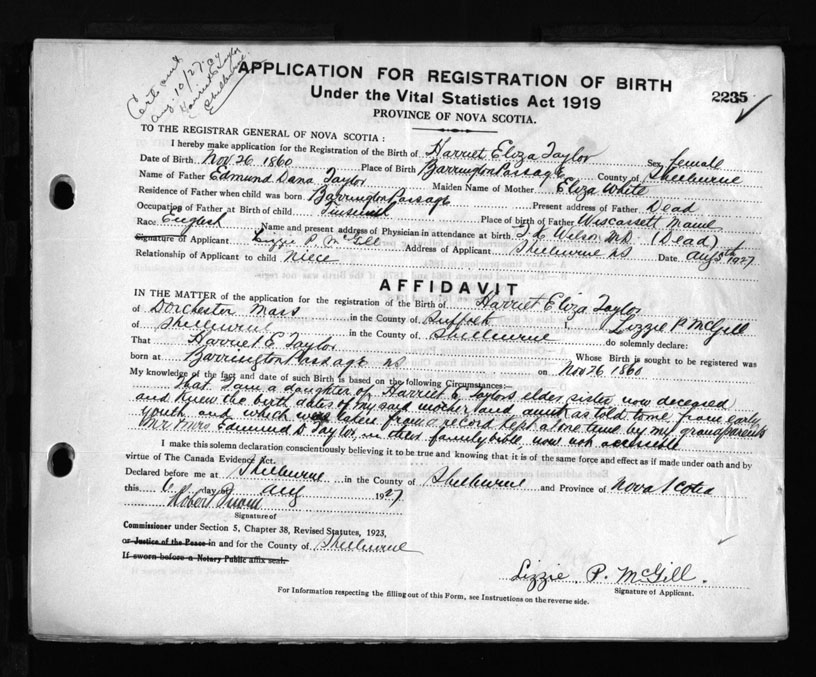 Cert. and.
Aug. 10/27. 
Harriet E Taylor
Shelburne.
APPLICATION FOR REGISTRATION OF BIRTH
Under the Vital Statistics Act 1919
2235
PROVINCE OF NOVA SCOTIA.
TO THE REGISTRAR GENERAL OF NOVA SCOTIA:
I hereby make application for the Registration of the Birth of Harriet Eliza Taylor Sex female
Date of Birth Nov 26 1860 Place of Birth Barrington Passage County of Shelburne
Name of Father Edmund Dana Taylor Maiden Name of Mother Eliza White
Residence of Father when child was born Barrington Passage Present address of Father Dead
Occupation of Father at Birth of child Tinsmith Place of birth of Father Wiscarsett Maine
Race English Name and present address of Physician in attendance at birth Wilson M.D. (Dead)
Signature of Applicant Lizzie P. McGill Address of Applicant Shelburne NS Date Aug 5th 1927
Relationship of Applicant to child Niece
AFFIDAVIT
IN THE MATTER of the application for the registration of the Birth of Harriet Eliza Taylor
of Dorchester Mass in the County of Suffolk I, Lizzie P. McGill
of Shelburne in the County of Shelburne do solemnly declare:
That Harriet E. Taylor Whose Birth is sought to be registered was
born at Barrington Passage NS on Nov 26 1860
My knowledge of the fact and date of such Birth is based on the following Circumstances:
That I am a daughter of Harriet E. Taylors elder sister now deceased
and knew the birth dates of my said mother and aunt as told to me from early
youth and which were taken from a record kept at one time by my grandparents
Mr & Mrs Edmund D Taylor, in their family bible now not accessible
I make this solemn declaration conscientiously believing it to be true and knowing that it is of the same force and effect as if made under oath and by
virtue of The Canada Evidence Act.
Declared before me at Shelburne in the County of Shelburne and Province of Nova Scotia
this 6 day of Aug 1927
Robert
Signature of
Commissioner under Section 5, Chapter 38, Revised Statutes, 1923,
or Justice of the Peace in and for the County of Shelburne
If sworn before a Notary Public affix seal.
Lizzie P. McGill.
Signature of Applicant.
For Information respecting the filling out of this Form, see Instructions on the reverse side.